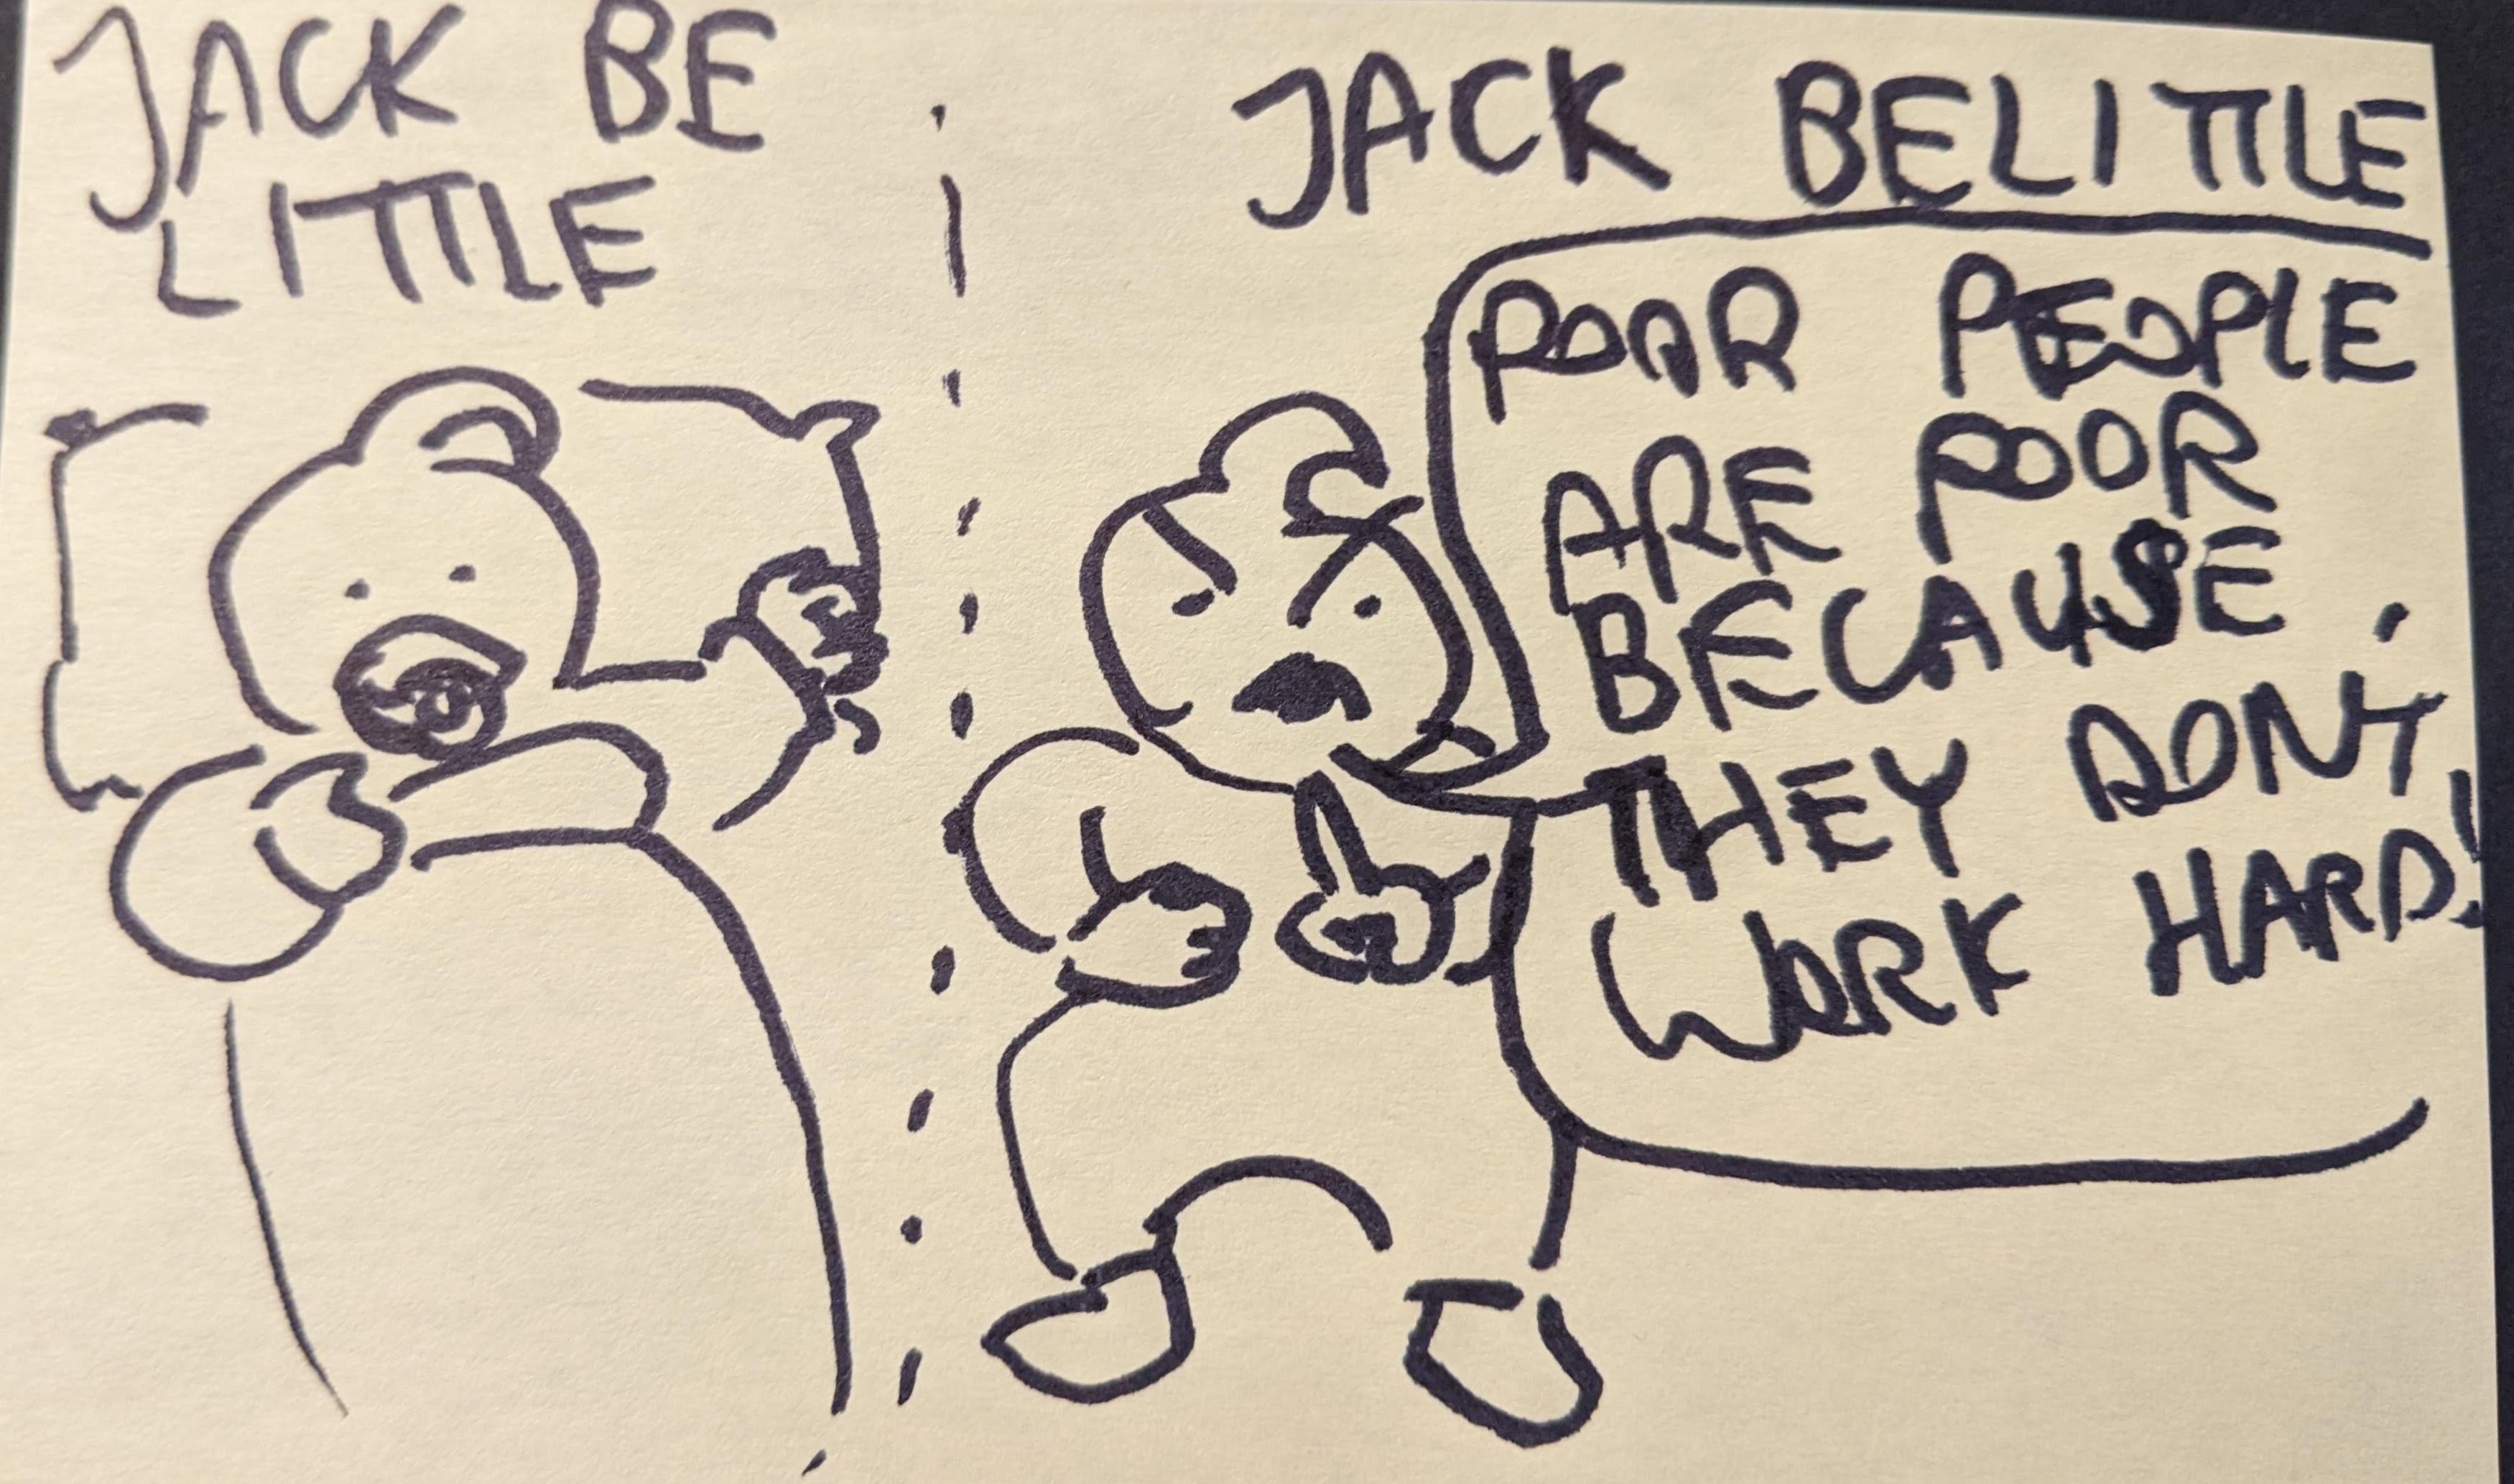 JACK BE
LITTLE
JACK BELITTLE
POOR PEOPLE
ARE POOR
BECAUSE
THEY DON'T
WORK HARD!